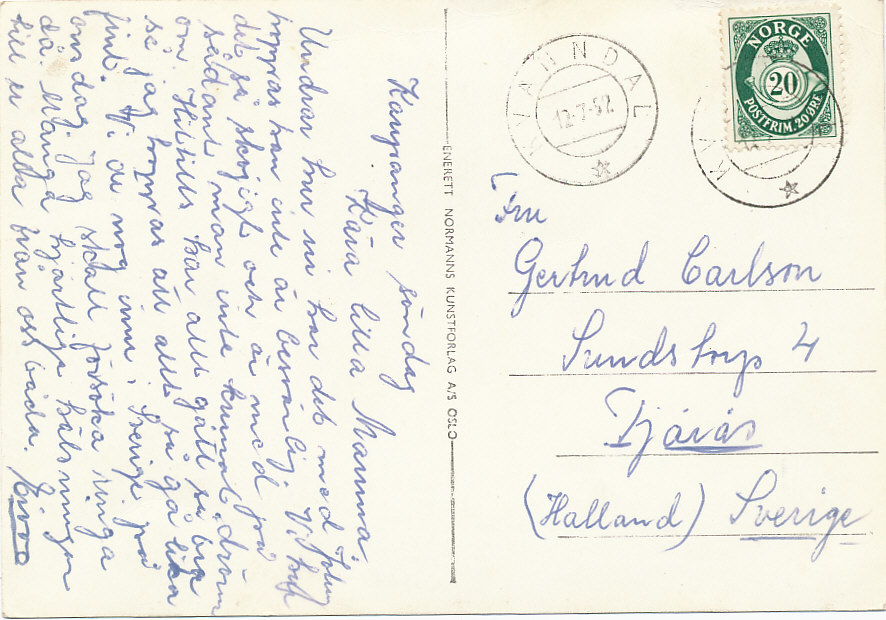 Kaupanger söndag
Kära lilla Mamma!
Undrar hur ni har det med Johan
hoppas han inte är besvärlig. Vi
det så skojigt och är med på
sådant man inte kunnat drömma
om. Hitills har allt gått så bra
så jag hoppas att allt så gå lika
fint. Vi är nog inne i Sverige på
onsdag. Jag skall försöka ringa
då. Många hjärtliga hälsningar
till er alla från oss båda.
ENERETT NORMANNS KUNSTFORLAG A/S OSLO
KVANNDAL
12-7-52
NORGE
20
POSTFRIM. 20 ØRE
Fru
Gertrud Carlson
Sundstorp 4
Tjärås
(Halland) Sverige